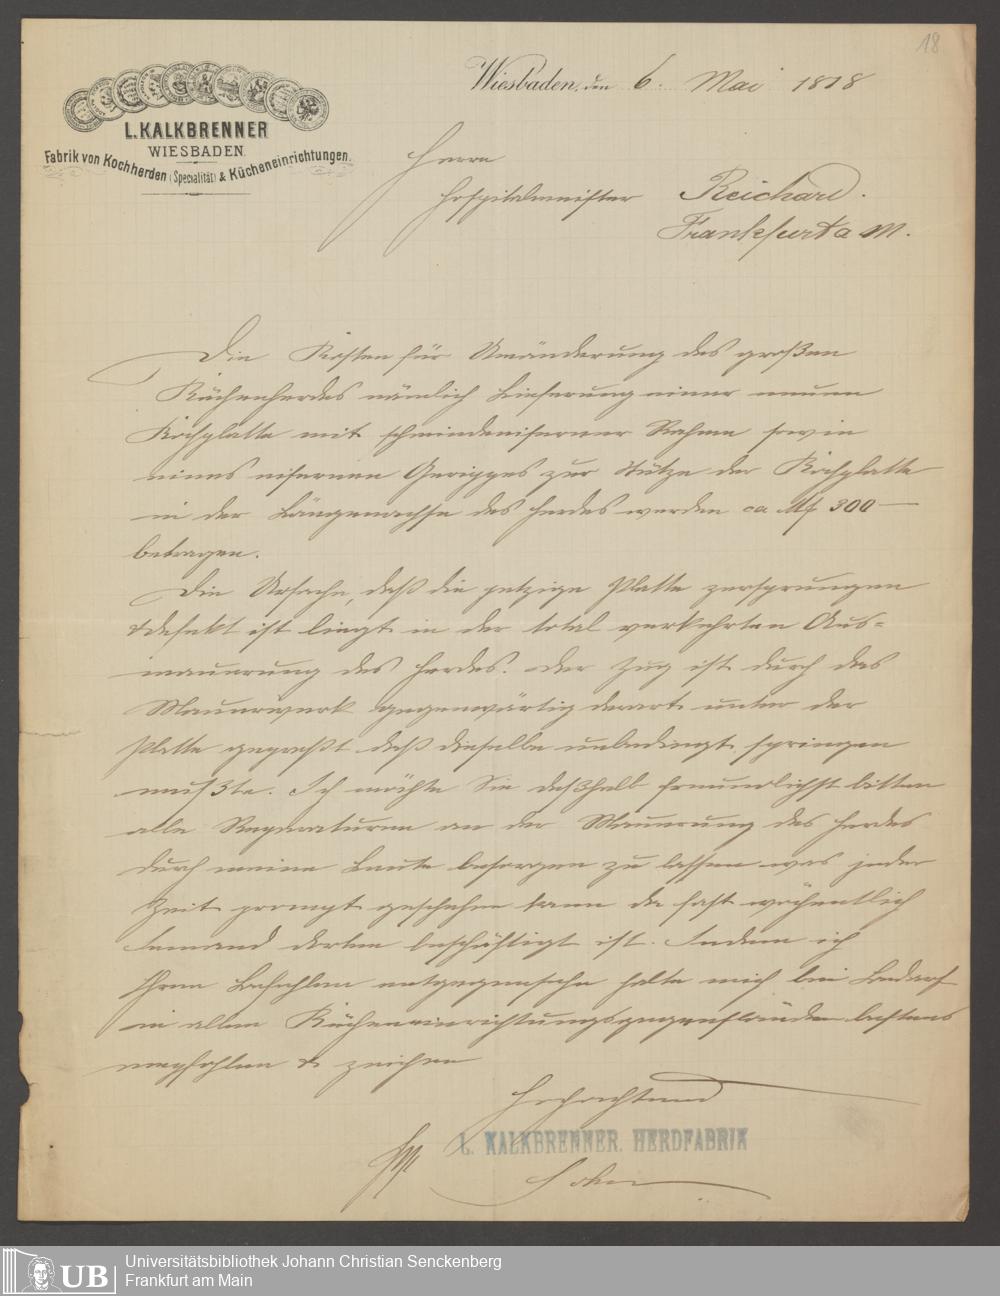 18
Wiesbaden, den 6. Mai 1878
L. KALKBRENNER
WIESBADEN.
Fabrik von Kochherden (Specialität) & Kücheneinrichtungen.
Herrn
Hospitalmeister Reichard.
Frankfurt a M.
Die Kosten für Umänderung des großen
Küchenherdes nämlich Lieferung einer neuen
Kochplatte mit schmiedeeiserner Rahme sowie
eines eisernen Gerippes zur Stütze der Kochplatte
in der Längenachse des Herdes werden ca Mk 300 —
betragen.
Die Ursache, daß die jetzige Platte zersprungen
& defekt ist liegt in der total verkehrten Aus-
mauerung des Herdes. Der Zug ist durch das
Mauerwerk gegenwärtig derart unter der
Platte gepreßt daß dieselbe unbedingt springen
mußte. Ich möchte Sie deßhalb freundlichst bitten
alle Reparaturen an der Mauerung des Herdes
durch meine Leute besorgen zu lassen was jeder
Zeit prompt geschehen kann da fast wöchentlich
Jemand dorten beschäftigt ist. Indem ich
Ihren Befehlen entgegensehe halte mich bei Bedarf
in allen Kücheneinrichtungsgegenständen bestens
empfohlen & zeichne
Hochachtend
L. KALKBRENNER. HERDFABRIK
UB
Universitätsbibliothek Johann Christian Senckenberg
Frankfurt am Main